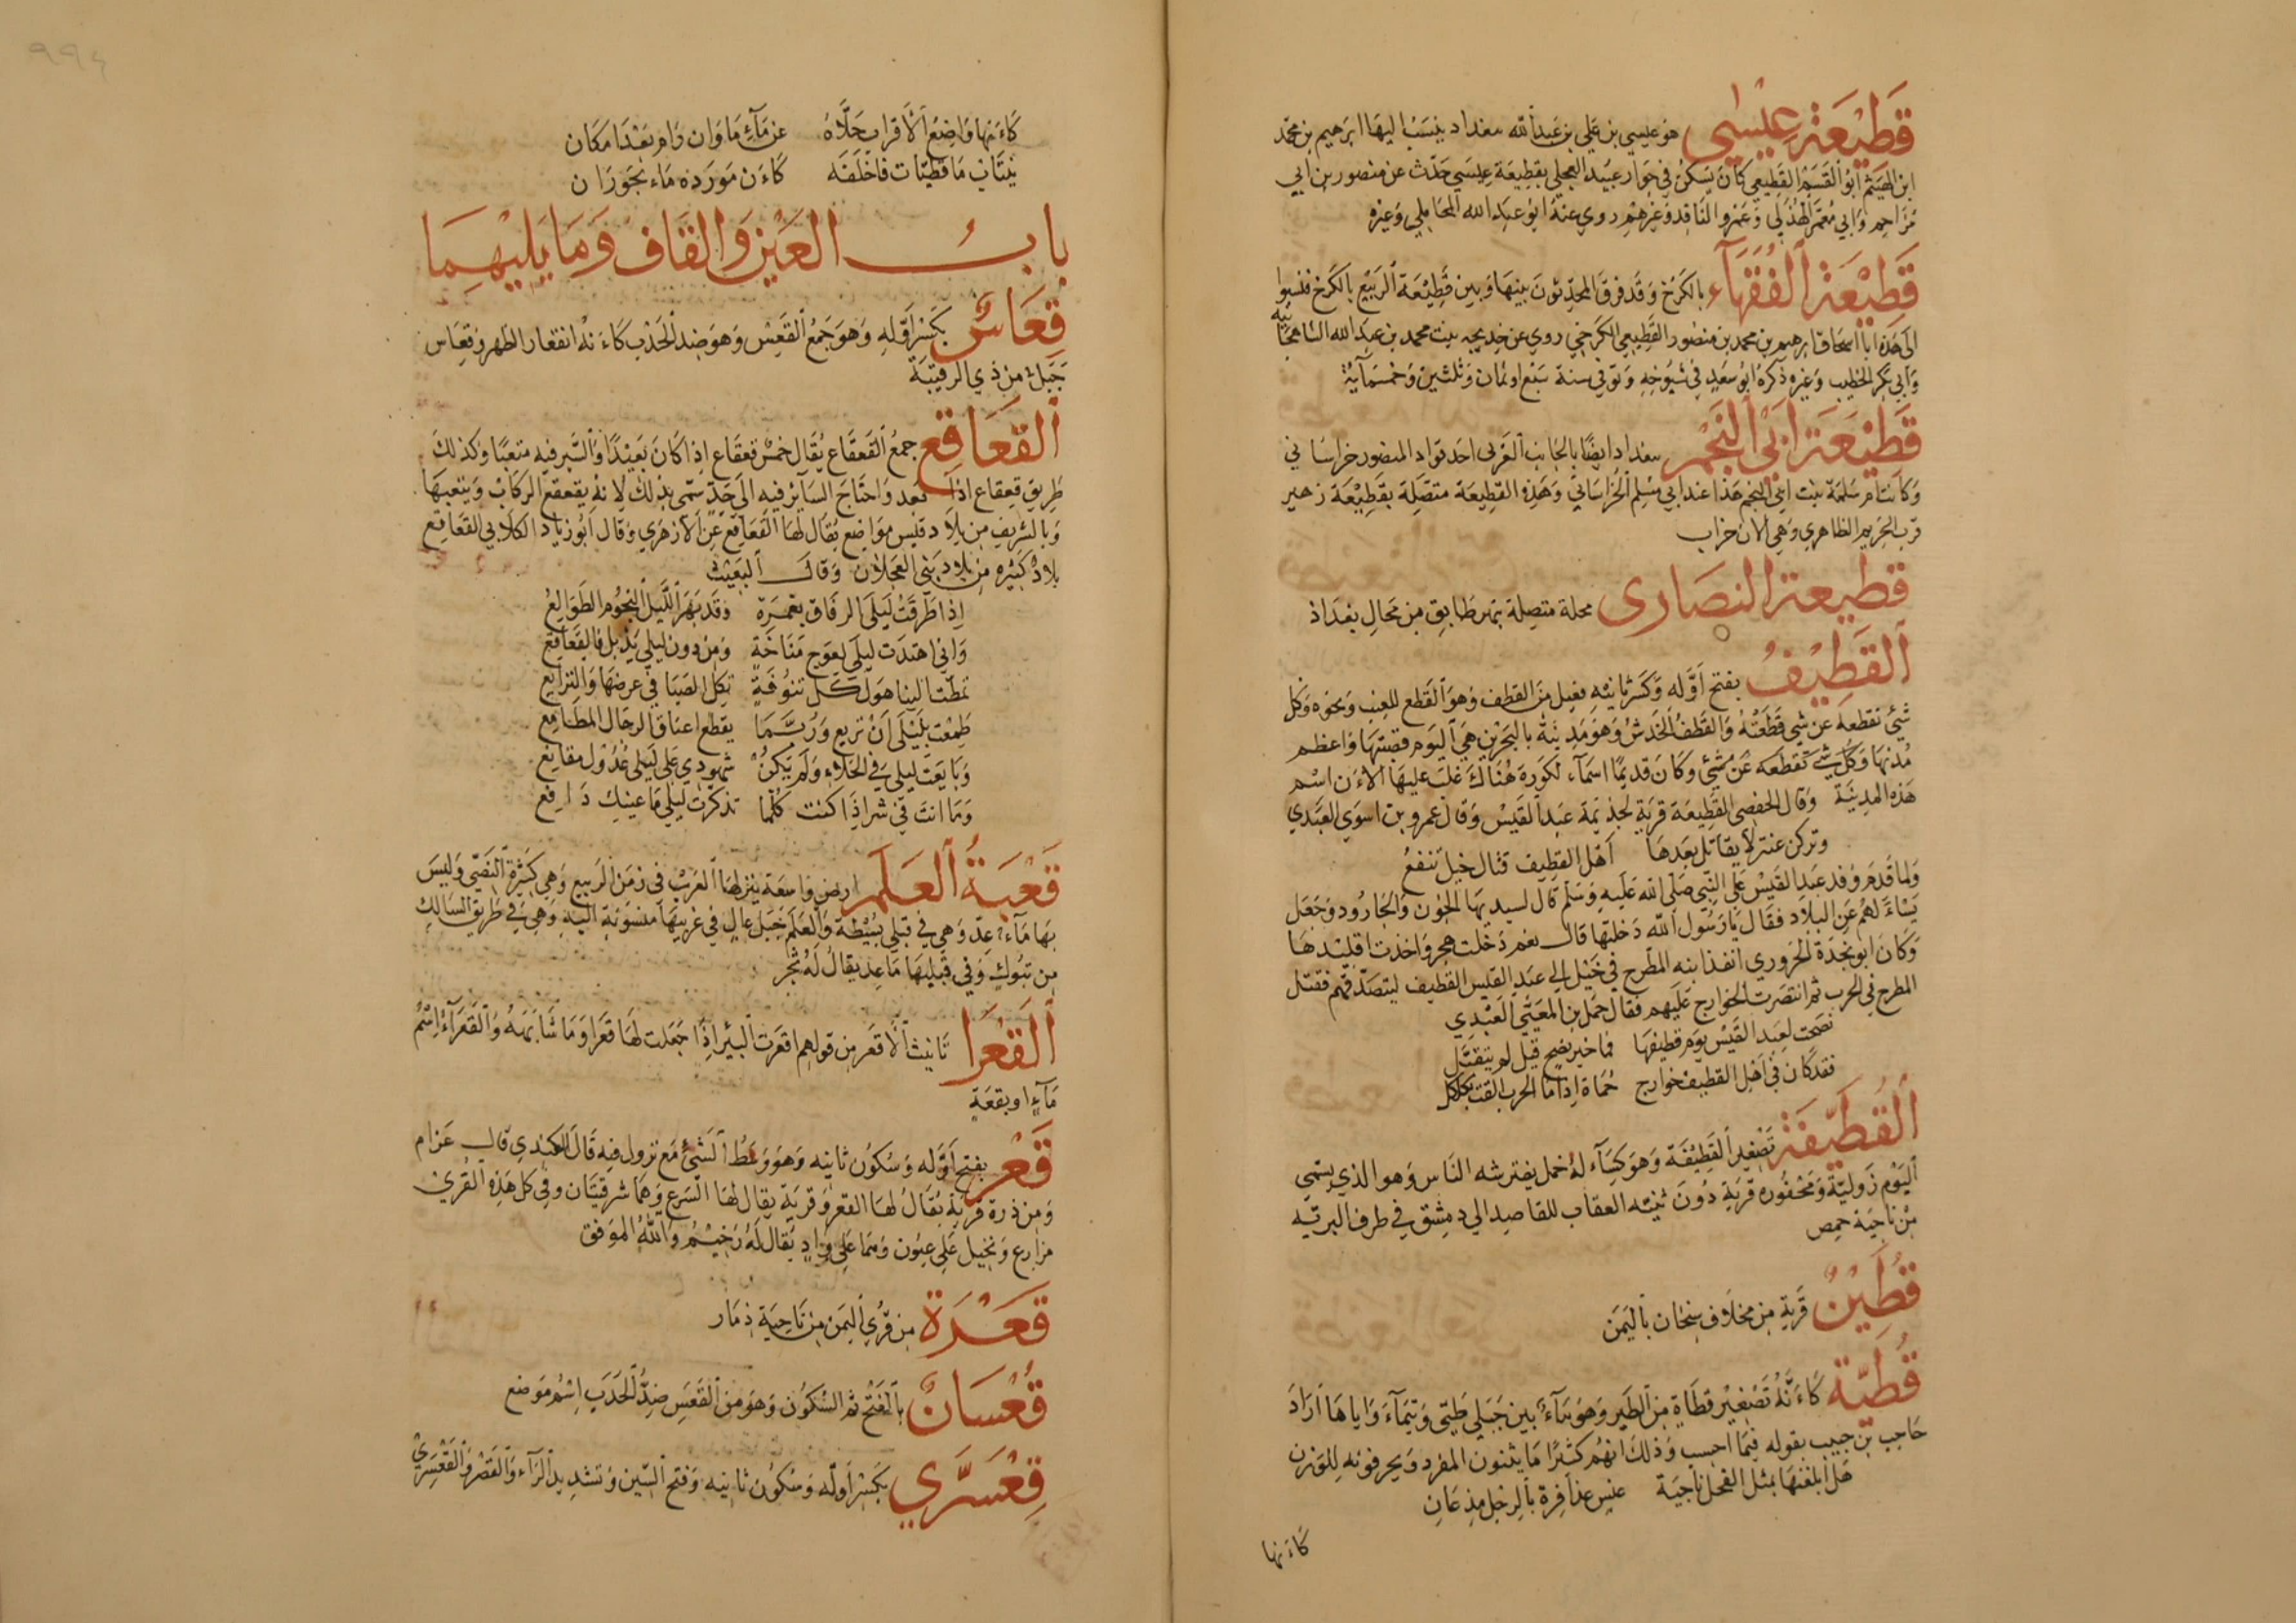 قَطِيْعَة عِيْسٰى هو عيسى بن علي بن عبد الله ببغداد ينسب اليها ابرهيم بن محمد
ابن الهيثم ابو القسم القطيعي كان يسكن في جوار عبيد العجلي بقطيعة عيسى حدث عن منصور بن ابي
مزاحم وابي معمر الهذلي وعمرو الناقد وغيرهم روي عنه ابو عبد الله المحاملي وغيره
قَطِيْعَة الفُقَهَآء بالكرخ وقد فرق المحدثون بينها وبين قطيعة الربيع بالكرخ فنسبوا
الى هذه ابا اسحاق ابرهيم بن محمد بن منصور القطيعي الكرخي روي عن خديجه بنت محمد بن عبد الله الشاهجانيه
وابي بكر الخطيب وغيره ذكره ابو سعد في شيوخه وتوفي سنة سبع او ثمان وثلثين وخمسمآية
قَطِيْعَة ابي النَجْمِ ببغداد ايضا بالجانب الغربى احد قواد المنصور خراساني
وكانت ام سلمة بنت ابي النجم هذا عند ابي مسلم الخراساني وهذه القطيعة متصلة بقطيعة زهير
قرب الحريم الطاهري وهي الان خراب
قطيعة النصَارى محلة متصلة بنهر طابق من محال بغداذ
اَلقَطِيْفُ بفتح اوله وكسر ثانيه فعيل من القطف وهو القطع للعنب ونحوه وكل
شيئ تقطعه عن شي قطعته والقطف الخدش وهو مدينة بالبحرين هي اليوم قصبتها واعظم
مدنها وكل شي تقطعه عن شيئ وكان قديما اسمآء لكورة هناك غلب عليها الاءن اسم
هذه المدينة وقال الحفصى القطيعة قرية لجذيمة عبد القيس وقال عمرو بن اسوي العبدي
وتركن عنتر لا يقاتل بعدها اهل القطيف قتال خيل تنفع
ولما قدم وفد عبد القيس على النبي صلى الله عليه وسلم قال لسيديها الجون والجارود وجعل
يسئاءلهم عن البلاد فقال يا رسول الله دخلتها قال نعم دخلت هجر واخذت اقليدها
وكان ابو نجدة الحروري انفذ ابنه المطرح في خيل الى عبد القيس القطيف ليتصدقهم فقتل
المطرح في الحرب ثم انتصرت الخوارج عليهم فقال حمل بن المعنى العبدي
نصحت لعبد القيس يوم قطيفها فما خير نصح قيل لم يتقبل
فقد كان في اهل القطيف خوارج حماة اذا ما الحرب القت بكلكل
اَلقُطَيِّفَة تصغير القطيفة وهو كسآء له خمل يفترشه الناس وهو الذي يسمى
اليوم زولية ومحفوره قرية دون ثنيته العقاب للقاصد الي دمشق في طرف البريه
من ناحية حمص
قُطَيْنٌ قرية من مخلاف سنحان باليمن
قُطَيَّة كاءنه تصغير قطاة من الطير وهو مآء بين جبلي طيى وتيمآء واياها اراد
حاجب بن حبيب بقوله فيما احسب وذلك انهم كثرا ما يثنون المفرد ويحرفونه للوزن
هل ابلغنها بمثل الفحل ناجية عنس عذافرة بالرحل مذعان
كاءنها
٩٩٤
كاءنها واضح الاقراب حلاه عن مآء ماوان رام بعد امكان
ينتاب ما قطيات فاخلفه كاءن مورده ماء بحوران
بابُ العَيْن والقاف وَمَا يَليْهِمَا
قِعَاسٌ بكسر اوله وهو جمع القعس وهو ضد الحدب كاءنه انقعار الظهر وقعاس
جبل من ذي الرقيبة
اَلقَعَاقِع جمع القعقاع يقال خمس قعقاع اذا كان بعيدا والسير فيه متعبا وكذلك
طريق قعقاع اذا بعد واحتاج السآير فيه الى جد سمى بذلك لانه يقعقع الركاب ويتعبها
وبالشريف من بلاد قيس مواضع يقال لها القعاقع عن الازهري وقال ابو زياد الكلابي القعاقع
بلاد كثيره من بلاد بنى العجلان وقال البعيث
اذا طرقت ليلى الرفاق بغمرة وقد بهر الليل النجوم الطوالع
واني اهتدت ليلى لعوج مناخة ومن دون ليلى يذبل فالقعاقع
تمطت الينا هول كل تنوفة تكل الصبا في عرضها والنزايع
طمعت بليلى ان تريع وربما يقطع اعناق الرجال المطامع
وبايعت ليلى في الخلاء ولم يكن شهودي على ليلى عدول مقانع
وما انت في شر اذا كنت كلما تذكرت ليلى ما عينك دافع
قَعْبَةُ اَلعَلَمِ ارض واسعة ينزلها العرب في زمن الربيع وهي كثيرة النصي وليس
بها مآء عد وهي في قبلي بسيطة والعلم جبل عال في غربيها منسوبة اليه وهي في طريق السالك
من تبوك وفي قبليها ما عد يقال له ثجر
اَلقَعْرَا تانيث الاقعر من قولهم اقعرت البئر اذا جعلت لها قعرا وما شابهه والقعرآء اسم
مآء او بقعة
قَعْر بفتح اوله وسكون ثانيه وهو وسط الشيئ مع نزول فيه قال الكندي قال عرام
ومن ذرة قرية يقال لها القعر وقرية يقال لها الشرع وهما شرقيتان وفي كل هذه القرى
مزارع ونخيل على عيون وهما على واد يقال له رخيم والله الموفق
قَعْرَة من قري اليمن من ناحية ذمار
قُعْسَانٌ بالفتح ثم السكون وهو من القعس ضد الحدب اسم موضع
قِعْسَرَّي بكسر اوله وسكون ثانيه وفتح السين وتشديد الرآء والقصر والقعسري